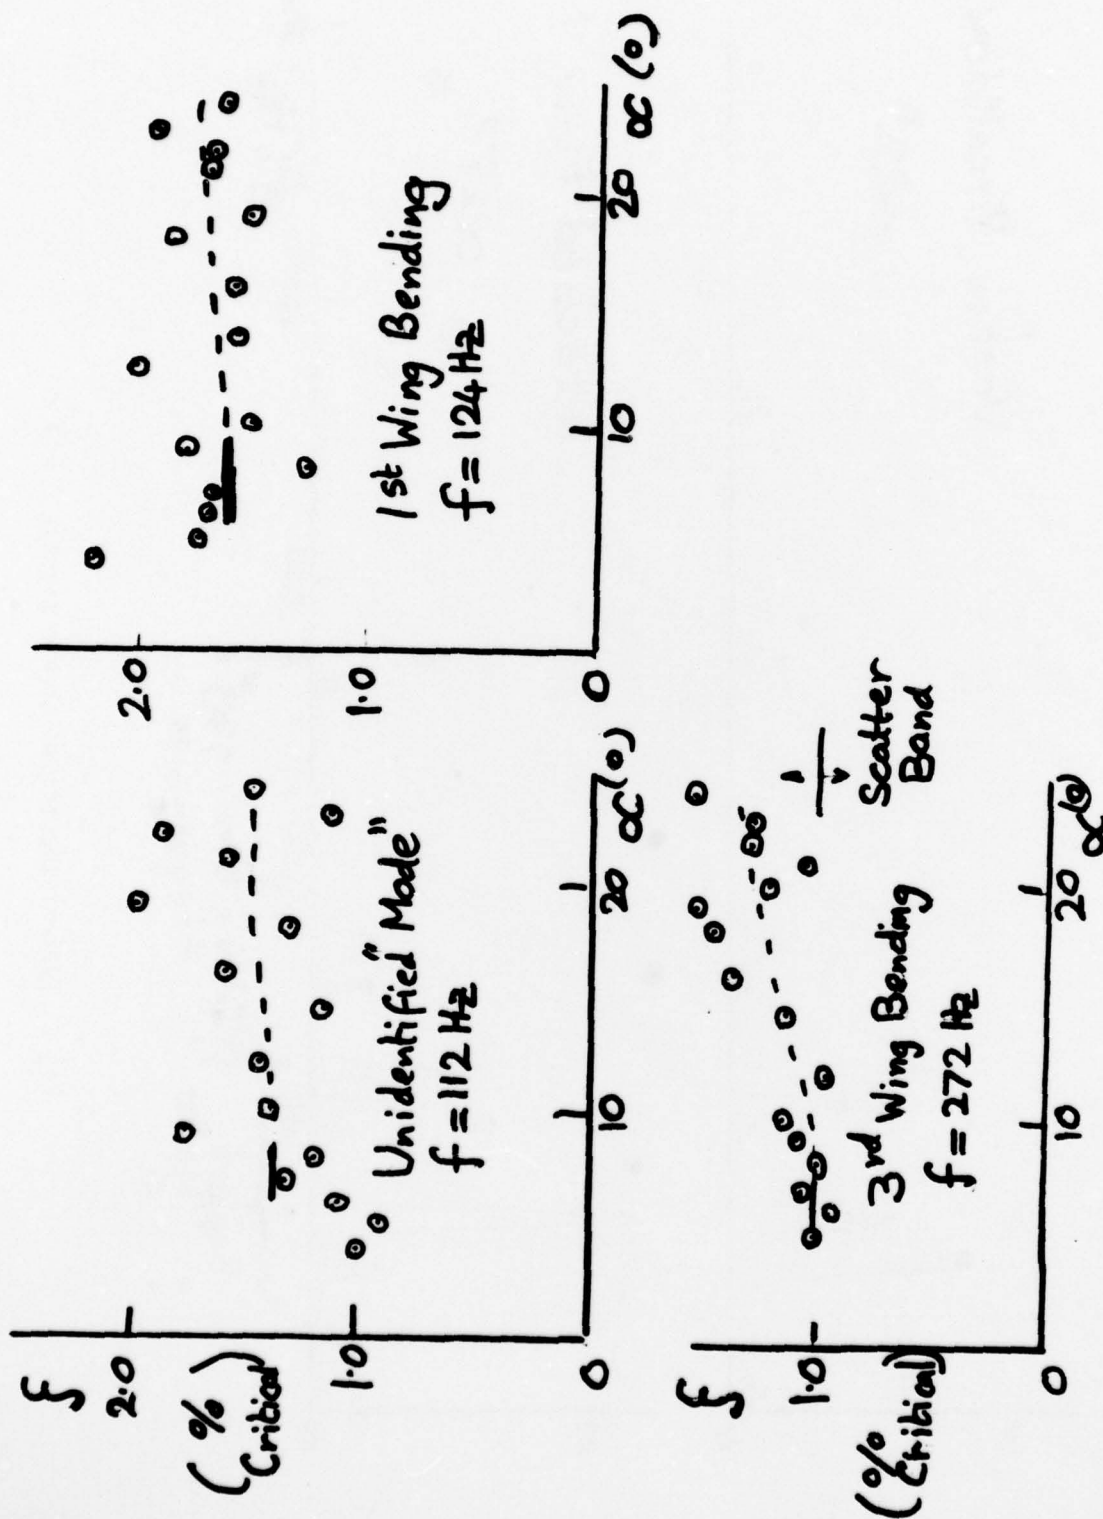 ζ
(%
Critical)
2.0
1.0
0
10
20
α(°)
Unidentified "Mode"
f = 112 Hz
2.0
1.0
0
10
20
α (°)
1st Wing Bending
f = 124 Hz
ζ
(%
Critical)
1.0
0
10
20
α(°)
3rd Wing Bending
f = 272 Hz
Scatter
Band